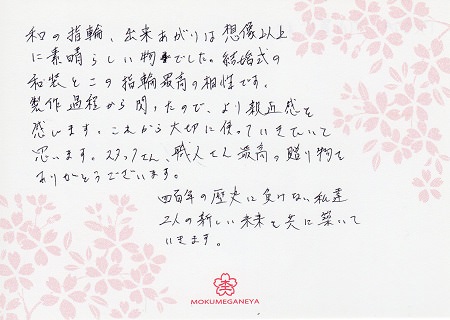 和の指輪、出来あがりは想像以上
に素晴らしい物でした。結婚式の
和装とこの指輪最高の相性です。
製作過程から関ったので、より親近感を
感じます。これから大切に使っていきたいと
思います。スタッフさん、職人さん最高の贈り物を
ありがとうございます。
四百年の歴史に負けない私達
2人の新しい未来を共に築いて
いきます。
MOKUMEGANEYA